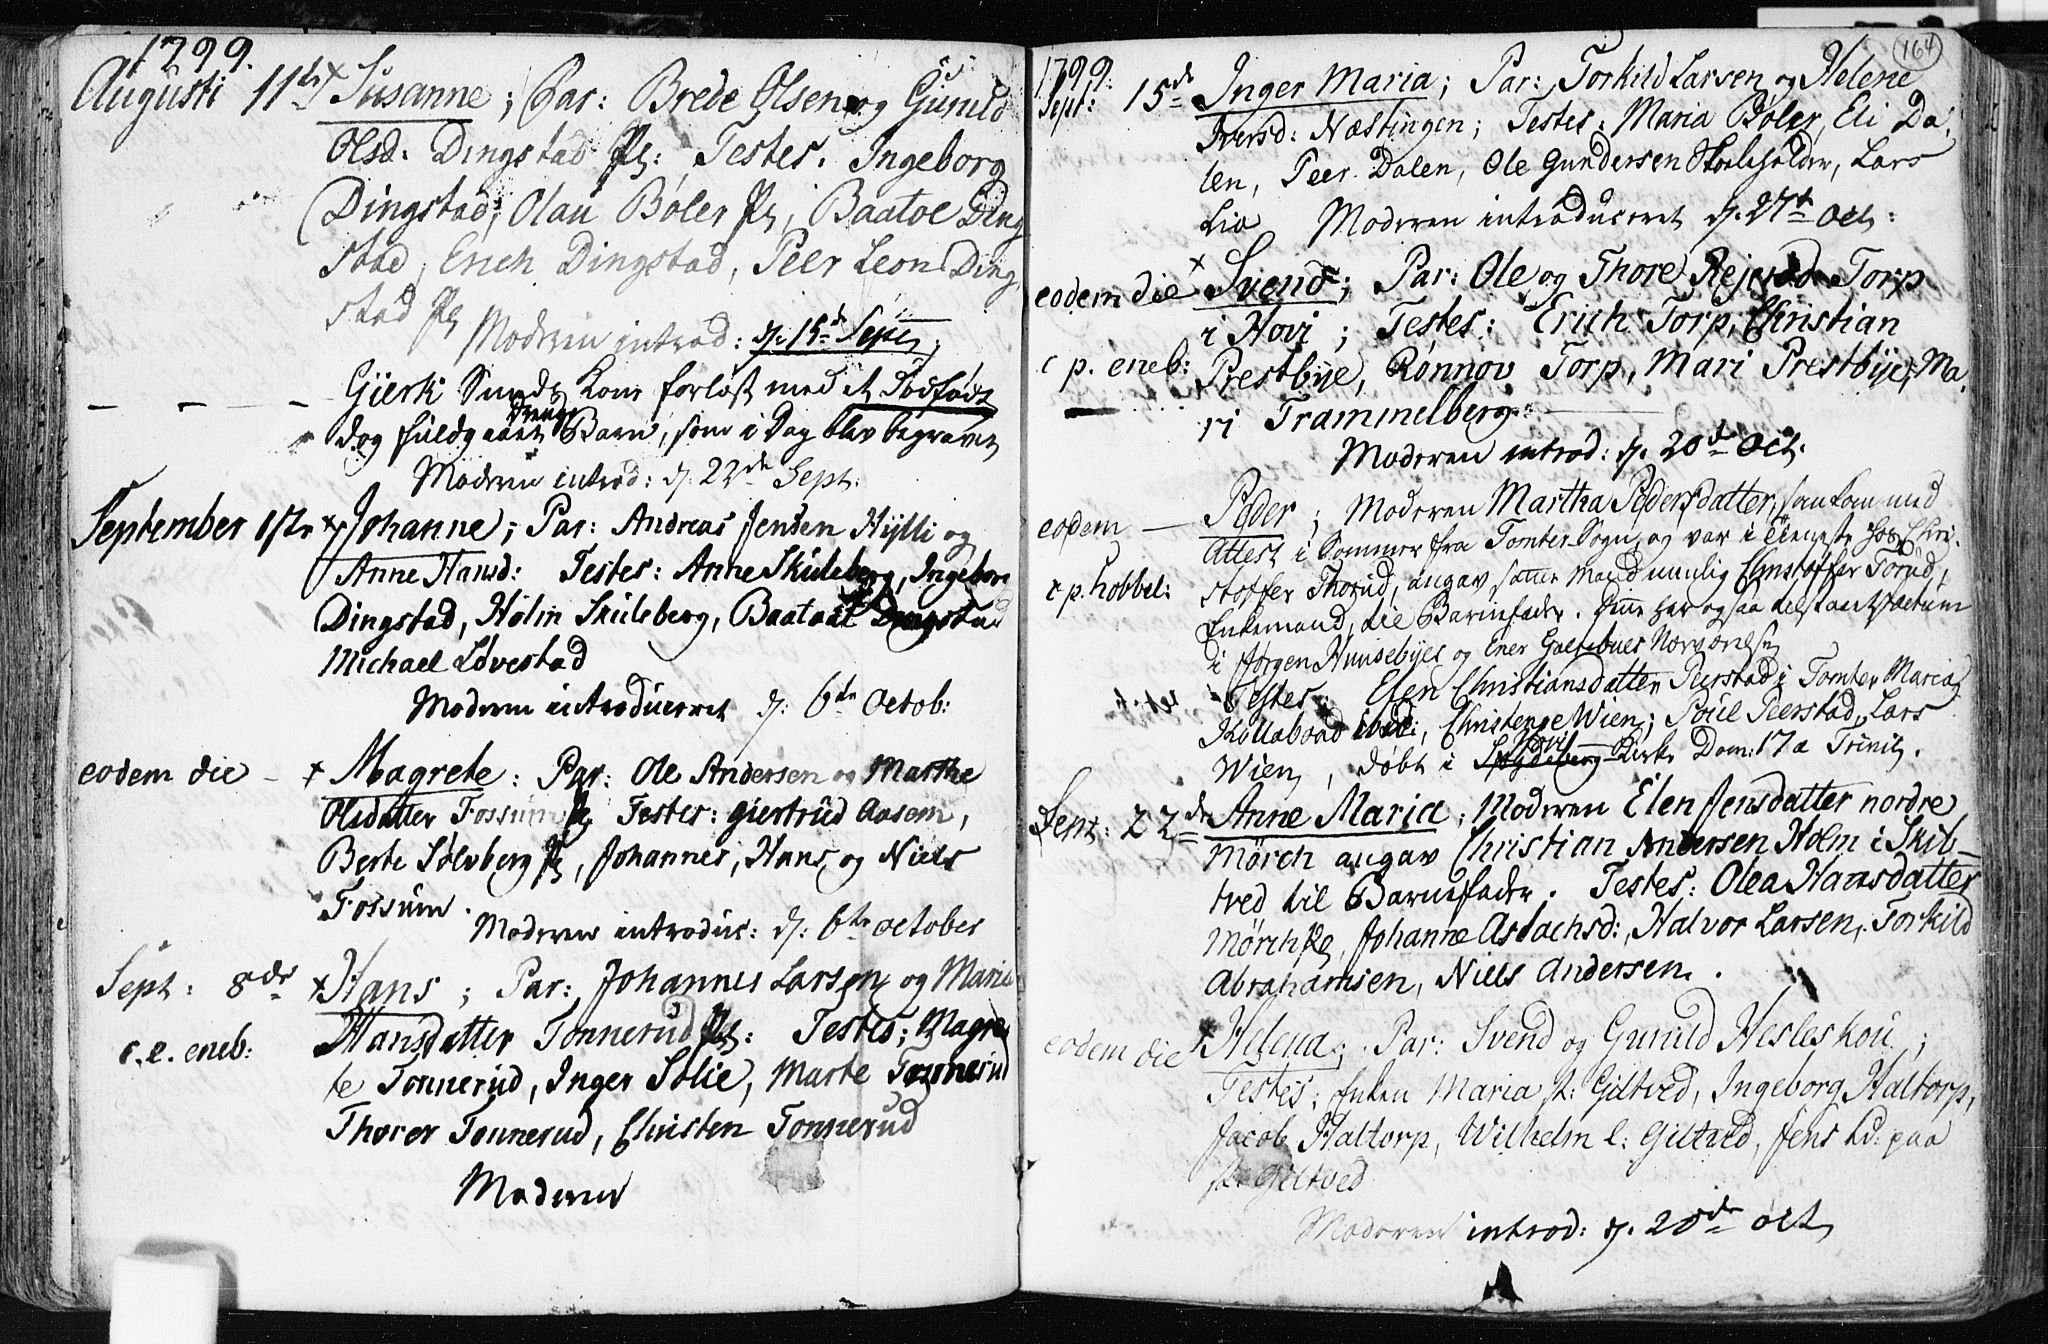 1799.
Augusti 11te + Susanne; Par: Brede Olsen og Gunild
Olsd: Dingstad Pl: Testes. Ingeborg
Dingstad, Olau Böler Pl, Baatoe Ding
stad, Erich Dingstad, Peer Leon Ding
stad Pl
Moderen introd: d. 15de Sept.
Gierk Sunds kom forløst med et Dødfødt
dog fuldgaaet Drenge Barn, som i Dag blev begravet
Moderen introd: d. 22de Sept.
September 1ste + Johanne; Par: Andreas Jensen Hylli og
Anne Hansd: Testes: Anne Skuleberg, Ingeborg
Dingstad, Holm Skuleberg, Baatoe Dingstad
Michael Løvestad
Moderen introduceret d: 6te Octob:
eodem die - + Magrete: Par: Ole Andersen og Marthe
Olsdatter Fossum Pl Testes: giertrud Aasem,
Berte Solvberg Pl, Johannes, Hans og Niels
Fossum.
Moderen introduc: d: 6te october
Sept: 8de + Hans; Par: Johannes Larsen og Maria
Hansdatter Tonnerud Pl: Testes; Magre
r. e. eneb:
te Tonnerud, Inger Solie, Marte Tonnerud
Thorer Tonnerud, Christen Tonnerud
Moderen
164
1799.
Sept: 15de Inger Maria; Par: Torkild Larsen og Helene
Iversd: Næstingen; Testes: Maria Böler, Eli Da
len, Peer Dalen, Ole Gundersen Skoleholder, Lars
Lia Moderen introduceret d. 27de Oct:
eodem die + Svend; Par: Ole og Thore Rejersd Torp
i Hovi; Testes: Erich Torp, Christian
c p. eneb: Prestbye, Rönnov Torp, Mari Prestbye, Ma
ri Trammelberg.
Moderen introd: d. 20de Oct.
eodem - Peder; Moderen Martha Pedersdatter, som kom med
Attest i Sommer fra Tomter Sogn, og var i Tieneste hos Chri-
c p. hobbel: stoffer Thorud, angav samme Mand nemlig Christoffer Torud,
Enkemand, til Barnefader. Hun har ogsaa
i Jørgen Huusebyes og Ener Nærværelse
Testes: Elen Christiansdatter Peerstad i Tomter Maria
Kollaboad ibid:, Christense Wien, Poul Peerstad, Lars
Wien, döbt i Spydeberg Hovi Kirke Dom: 17 a Trinit.
Sept: 22de Anne Maria; Moderen Elen Jensdatter nordre
Mörch angav Christian Andersen Holm i Skib-
tved til Barnefader. Testes: Olea Hansdatter
Mörch Pl, Johanne Aslachsd:, Halvor Larsen, Torkild
Abrahamsen, Niels Andersen.
eodem die + Helena; Par: Svend og Gunild Hesleskou;
Testes; Enken Maria st: Giltved, Ingeborg Haltorp,
Jacob Haltorp, Wilhelm l: Giltved, Jens Ld: paa
st Giltved
Moderen introd: d. 20de oct